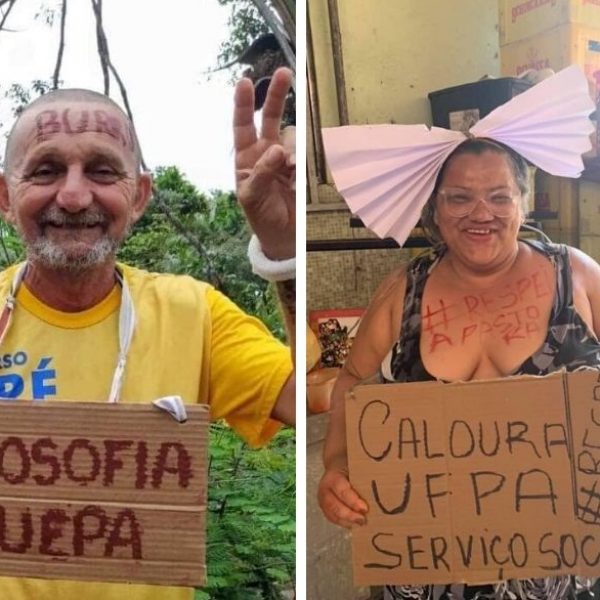 BURR
RSO
RÉ
LOSOFIA
UEPA
#RESPEI
A PASTO
RA
CALOURA
UFPA
SERVIÇO SOC